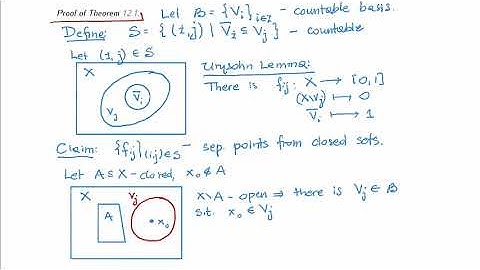 Proof of Theorem 12.1. Let B = {Vᵢ}ᵢ∈I - countable basis.
Define: S = { (i,j) | V̅ᵢ ⊆ Vⱼ } - countable
Let (i,j) ∈ S
X
V̅ᵢ
Vⱼ
Urysohn Lemma:
There is fᵢⱼ: X → [0,1]
(X\Vⱼ) ↦ 0
V̅ᵢ ↦ 1
Claim: {fᵢⱼ}(i,j)∈S - sep. points from closed sets.
Let A ⊆ X - closed, x₀ ∉ A
X
Vⱼ
A
x₀
X\A - open ⇒ there is Vⱼ ∈ B
s.t. x₀ ∈ Vⱼ